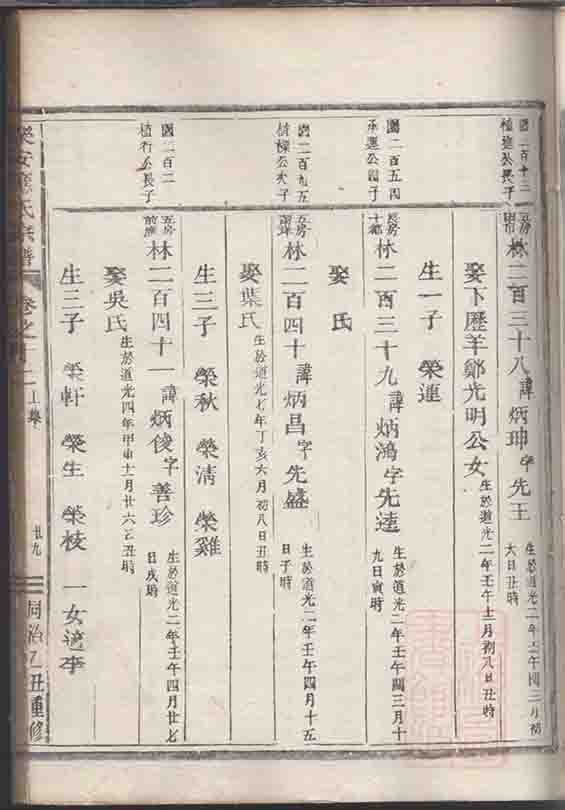 國二百十三
植進公長子
林二百三十八諱炳珅字先王
生於道光二年壬午閏三月初
六日丑時
娶下歷羊鄭光明公女
生於道光二年壬午十二月初八日丑時
生一子 榮連
國二百五四
承運公四子
長房
十都
林二百三十九諱炳鴻字先達
生於道光二年壬午閏三月十
九日寅時
娶 氏
國二百九五
樹樑公次子
五房
林二百四十諱炳昌字先盛
生於道光二年壬午四月十五
日子時
娶葉氏
生於道光七年丁亥六月初八日丑時
生三子 榮秋 榮清 榮雞
國二百二
植行公長子
五房
前應
林二百四十一諱炳俊字善珍
生於道光二年壬午四月廿七
日戌時
娶吳氏
生於道光四年甲申十月廿六日丑時
生三子 榮軒 榮生 榮枝 一女適李
樂安應氏宗譜
卷之十二
廿九
同治乙丑重修